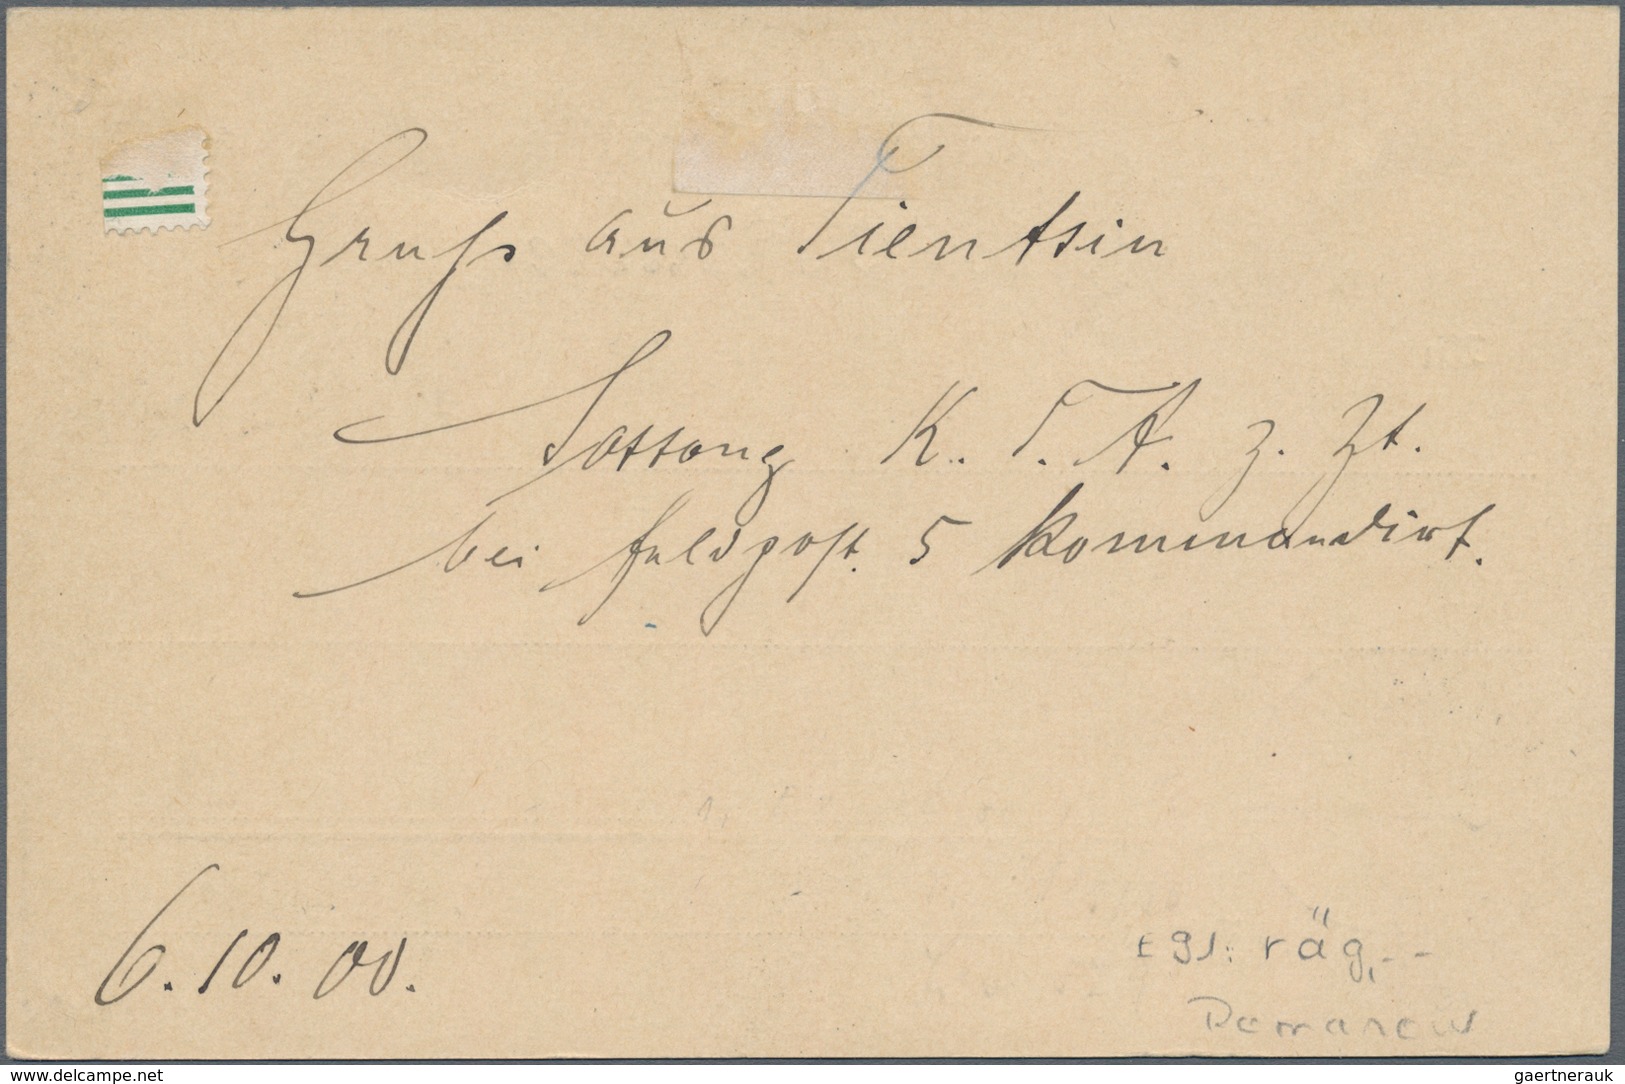 Gruß aus Tientsin
Sattong K. T. A. z. Zt.
bei Feldpost. 5 kommandirt.
6. 10. 00.
räg,--
www.delcampe.net
gaertnerauk